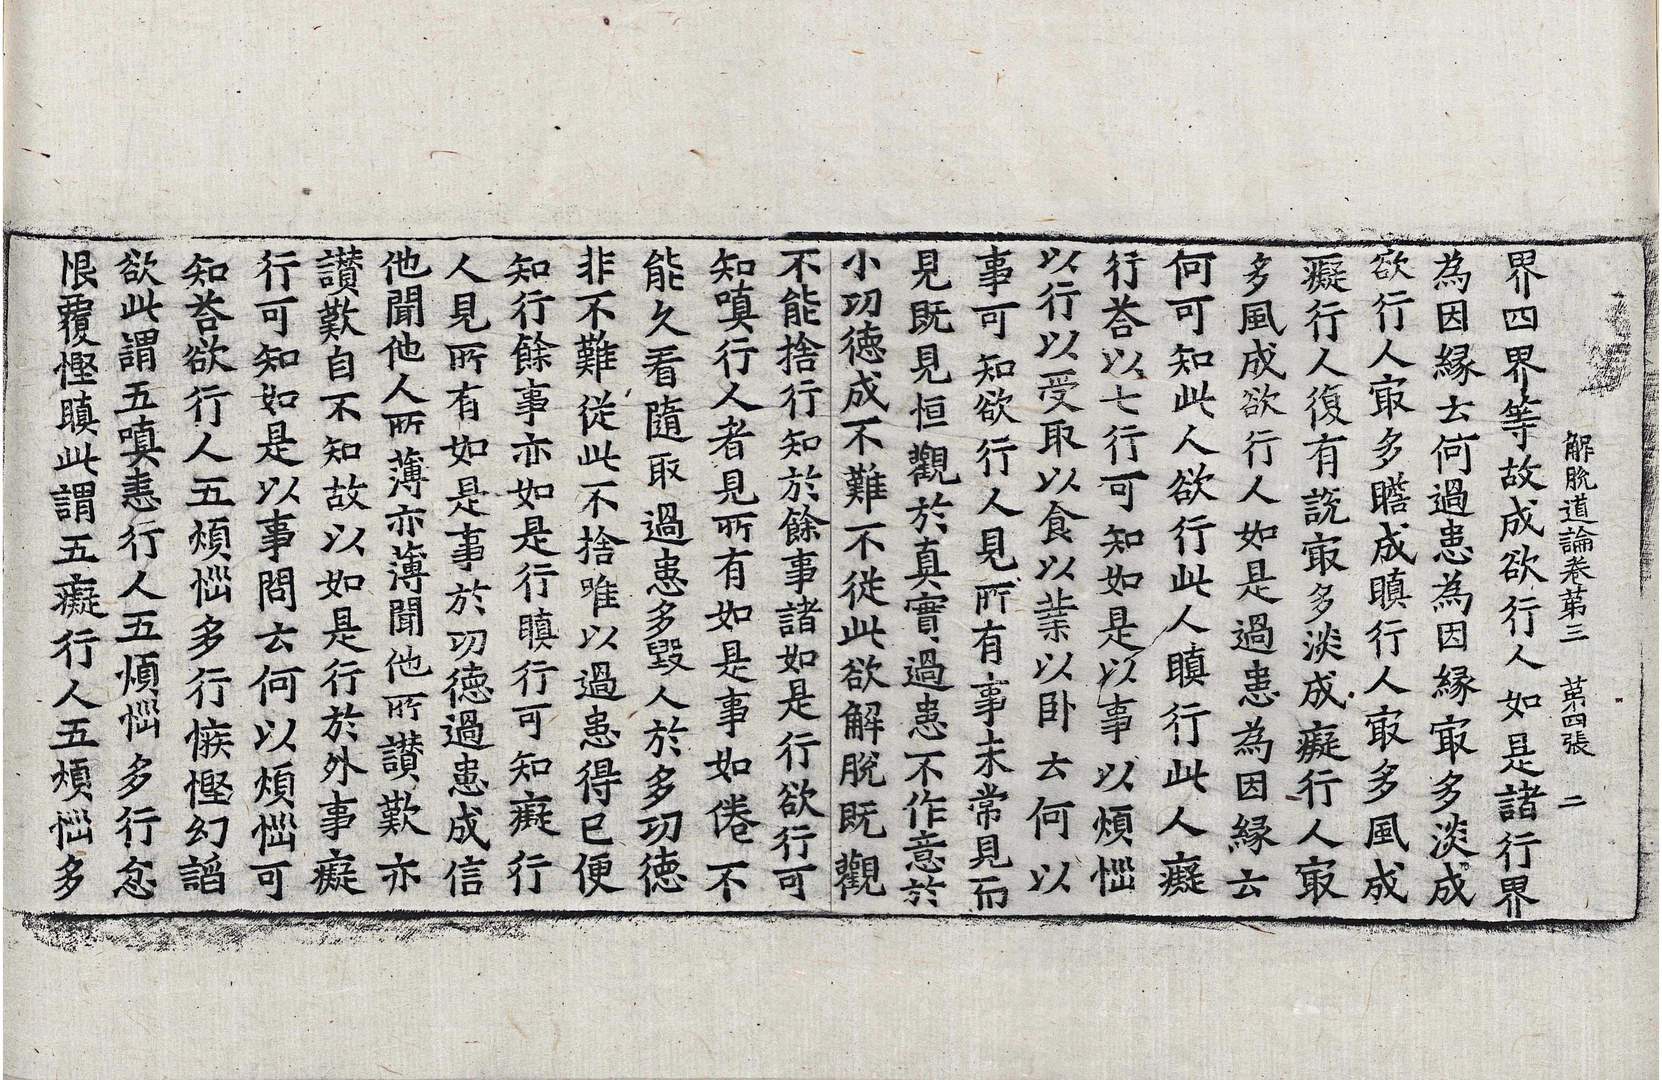 解脫道論卷第三　第四張　二
界四界等故成欲行人如是諸行界
為因緣云何過患為因緣㝡多淡成
欲行人㝡多膽成瞋行人㝡多風成
癡行人復有說㝡多淡成癡行人㝡
多風成欲行人如是過患為因緣云
何可知此人欲行此人瞋行此人癡
行荅以七行可知如是以事以煩惱
以行以受取以食以業以卧云何以
事可知欲行人見所有事未常見而
見既見恒觀於真實過患不作意於
小功德成不難不從此欲解脫既觀
不能捨行知於餘事諸如是行欲行可
知嗔行人者見所有如是事如倦不
能久看隨取過患多毀人於多功德
非不難從此不捨唯以過患得已便
知行餘事亦如是行瞋行可知癡行
人見所有如是事於功德過患成信
他聞他人所薄亦薄聞他所讃歎亦
讃歎自不知故以如是行於外事癡
行可知如是以事問云何以煩惱可
知荅欲行人五煩惱多行嫉慳幻諂
欲此謂五嗔恚行人五煩惱多行忿
恨覆慳瞋此謂五癡行人五煩惱多